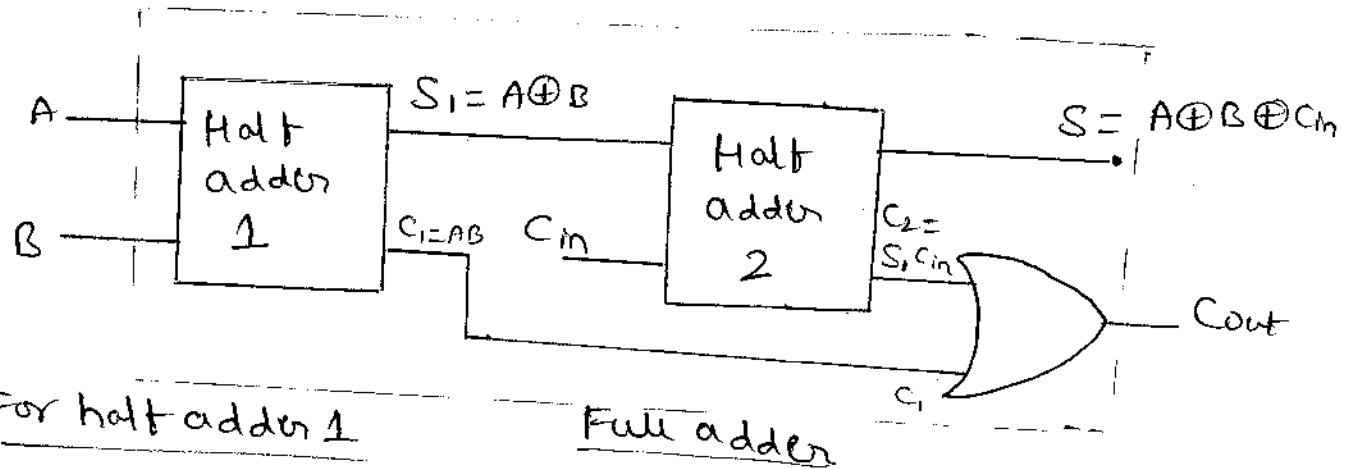 A
B
Half
adder
1
S₁ = A⊕B
C₁=AB
Cin
Half
adder
2
C₂ =
S₁ Cin
S = A⊕B⊕Cin
Cout
C₁
For half adder 1
Full adder